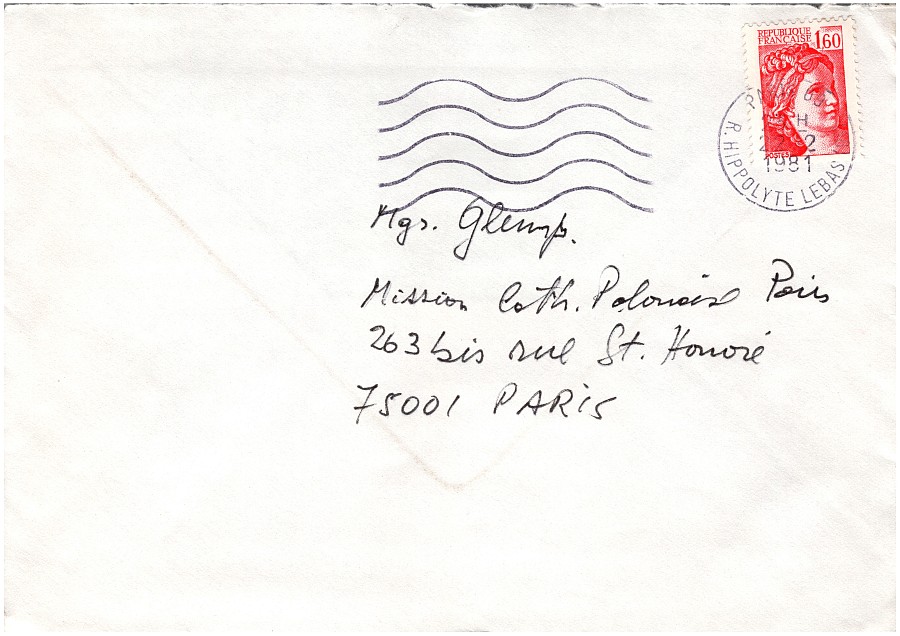 REPUBLIQUE
FRANCAISE
1,60
POSTES
H
2
1981
R. HIPPOLYTE LEBAS
Mgr. Glemp.
Mission Cath. Polonaise Paris
263 bis rue St. Honoré
75001 PARIS